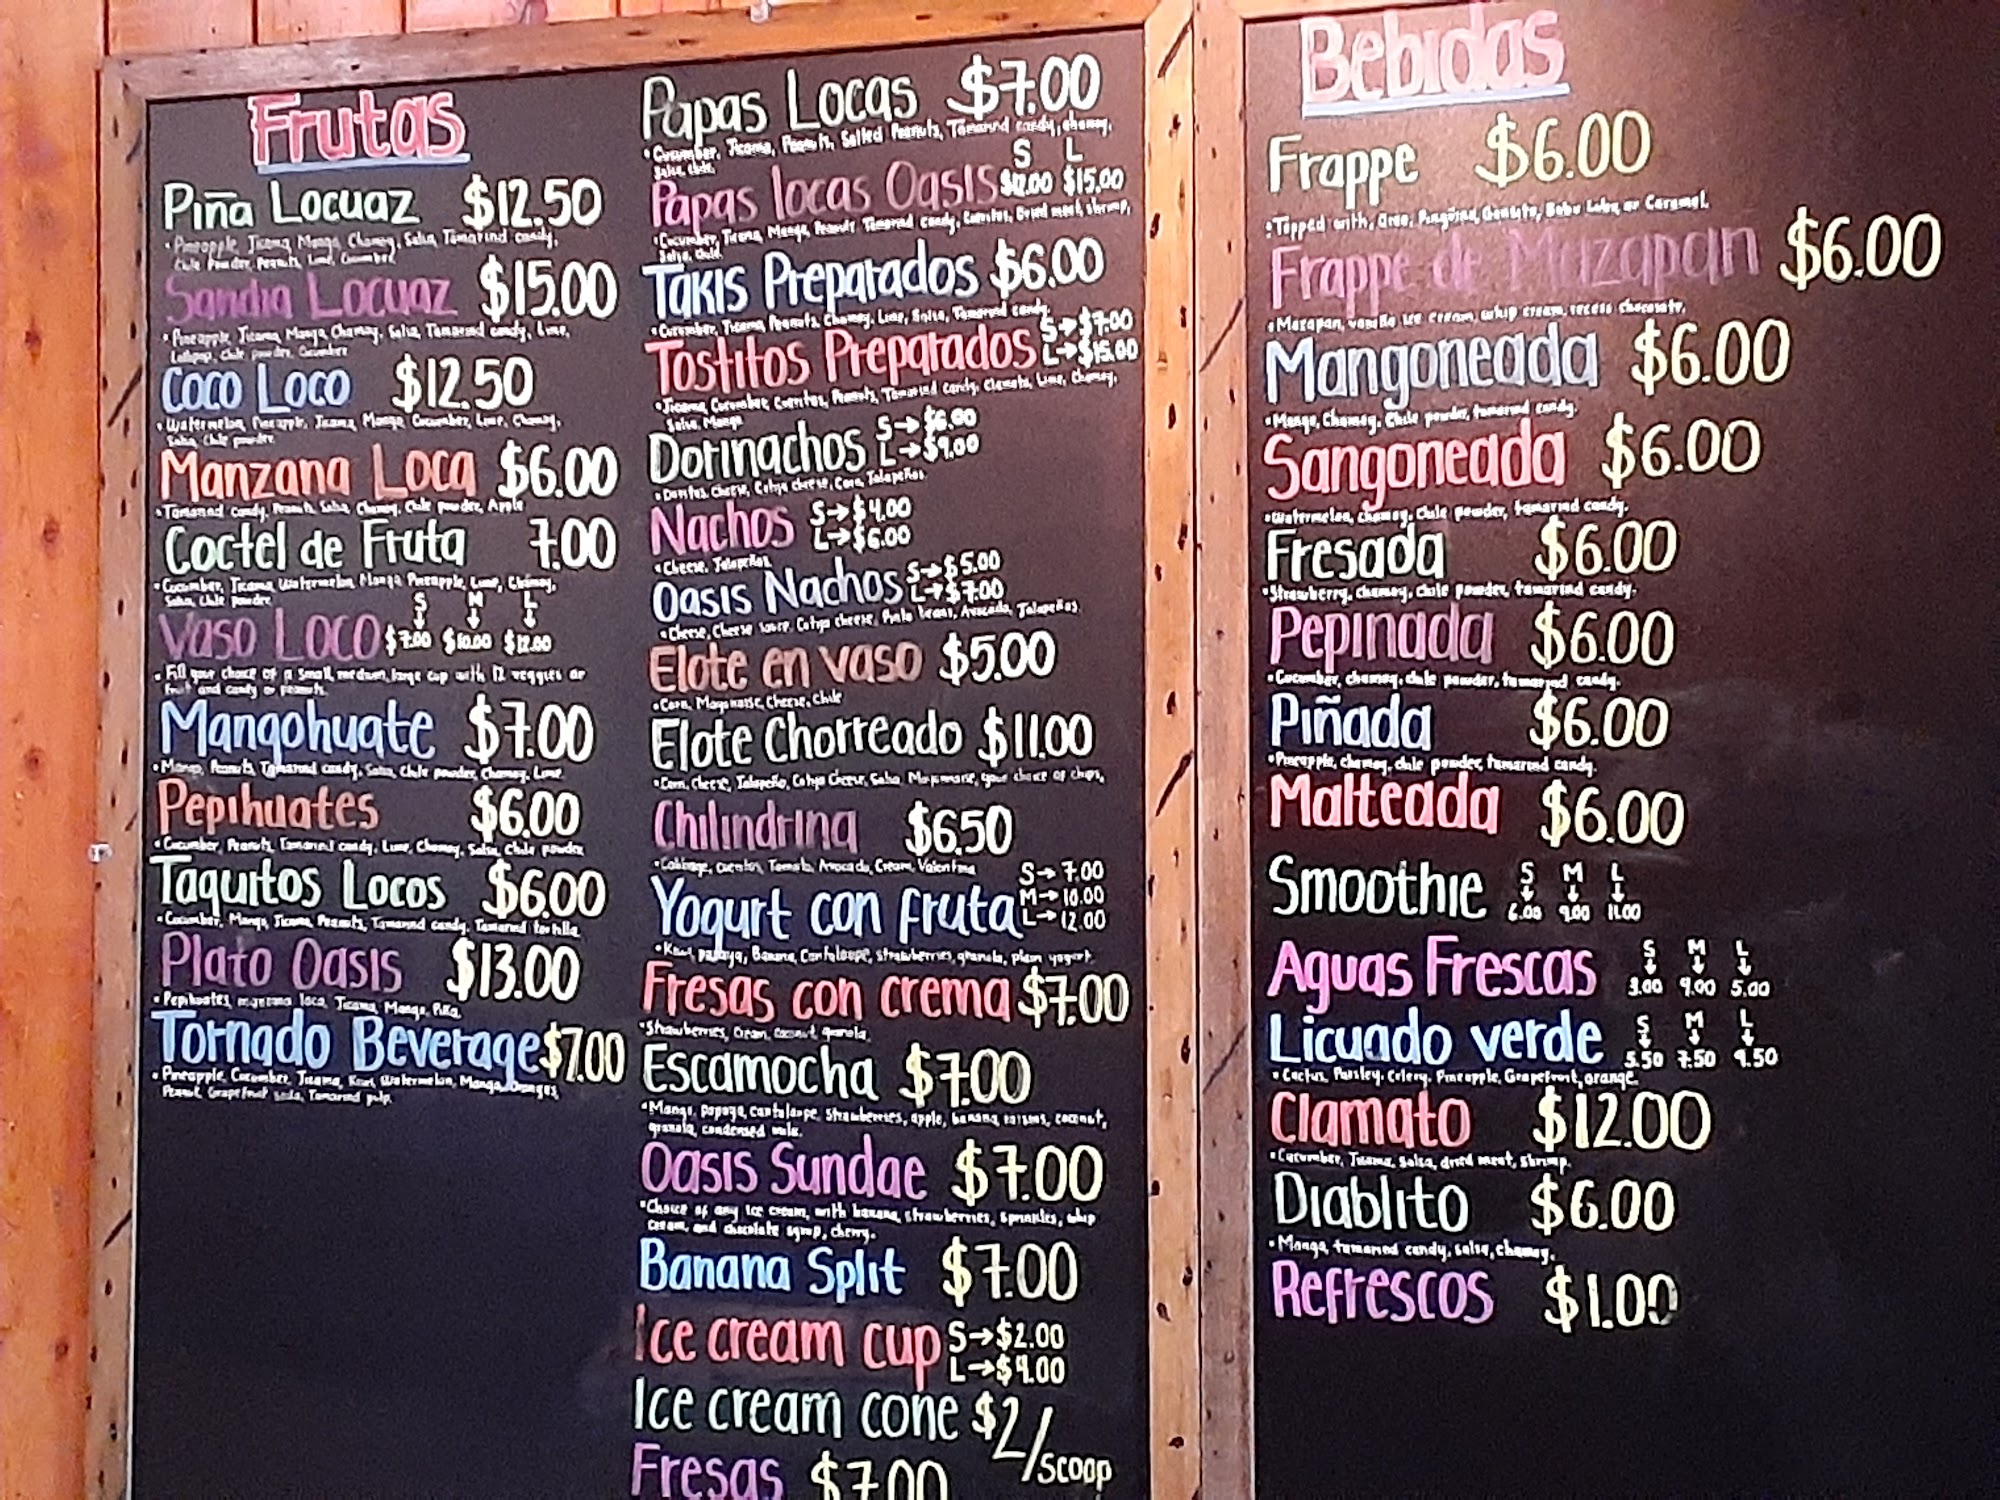 Frutas
Piña Locuaz $12.50
• Pineapple, Jicama, Mango, Chamoy, Salsa, Tamarind candy,
Chile Powder, Peanuts, Lime, Cucumber
Sandia Locuaz $15.00
• Pineapple, Jicama, Mango, Chamoy, Salsa, Tamarind candy, Lime,
Lollipop, Chile powder, Cucumber
Coco Loco $12.50
• Watermelon, Pineapple, Jicama, Mango, Cucumber, Lime, Chamoy,
Salsa, Chile powder
Manzana Loca $6.00
• Tamarind candy, Peanuts, Salsa, Chamoy, Chile powder, Apple
Coctel de Fruta 7.00
• Cucumber, Jicama, Watermelon, Mango, Pineapple, Lime, Chamoy,
Salsa, Chile powder
S M L
Vaso Loco $7.00 $10.00 $12.00
• Fill your choice of a small, medium, large cup with 12 veggies or
fruit and candy or peanuts.
Mangohuate $7.00
• Mango, Peanuts, Tamarind candy, Salsa, Chile powder, Chamoy, Lime
Pepihuates $6.00
• Cucumber, Peanuts, Tamarind candy, Lime, Chamoy, Salsa, Chile powder
Taquitos Locos $6.00
• Cucumber, Mango, Jicama, Peanuts, Tamarind candy, Tamarind tortilla
Plato Oasis $13.00
• Pepihuates, manzana loca, Jicama, Mango, Piña
Tornado Beverage $7.00
• Pineapple, Cucumber, Jicama, Kiwi, Watermelon, Mango, Oranges,
Peanut, Grapefruit soda, Tamarind pulp.
Papas Locas $7.00
• Cucumber, Jicama, Peanuts, Salted Peanuts, Tamarind candy, chamoy,
Salsa, Chile.
S L
Papas locas Oasis $12.00 $15.00
• Cucumber, Jicama, Mango, Peanuts Tamarind candy, Cueritos, Dried meat, shrimp,
Salsa, Chile
Takis Preparados $6.00
• Cucumber, Jicama, Peanuts, Chamoy, Lime, Salsa, Tamarind candy
Tostitos Preparados S→$7.00
L→$15.00
• Jicama, Cucumber, Cueritos, Peanuts, Tamarind candy, Clamato, Lime, Chamoy,
Salsa, Mango
Dorinachos S→$6.00
L→$9.00
• Doritos, Cheese, Cotija cheese, Corn, Jalapeños
Nachos S→$4.00
L→$6.00
• Cheese, Jalapeños
Oasis Nachos S→$5.00
L→$7.00
• Cheese, Cheese sauce, Cotija cheese, Pinto beans, Avocado, Jalapeños
Elote en vaso $5.00
• Corn, Mayonaise, Cheese, Chile
Elote Chorreado $11.00
• Corn, Cheese, Jalapeño, Cotija Cheese, Salsa, Mayonaise, your choice of chips,
Chilindrina $6.50
• Cabbage, cueritos, Tomato, Avocado, Cream, Valentina
Yogurt con fruta S→ 7.00
M→ 10.00
L→ 12.00
• Kiwi, papaya, Banana, Cantaloupe, strawberries, granola, plain yogurt
Fresas con crema $7.00
• Strawberries, Cream, Coconut, granola.
Escamocha $7.00
• Mango, papaya, cantaloupe, strawberries, apple, banana, raisins, coconut,
granola, condensed milk.
Oasis Sundae $7.00
• Choice of any ice cream, with banana, strawberries, sprinkles, whip
cream, and chocolate syrup, cherry.
Banana Split $7.00
Ice cream cup S→$2.00
L→$4.00
Ice cream cone $2/scoop
Fresas $7.00
Bebidas
Frappe $6.00
• Topped with, Oreo, Pinguino, Gansito, Bubu Lubu, or Caramel.
Frappe de Mazapan $6.00
• Mazapan, vanilla ice cream, whip cream, reeses chocolate.
Mangoneada $6.00
• Mango, Chamoy, Chile powder, tamarind candy.
Sangoneada $6.00
• Watermelon, chamoy, Chile powder, tamarind candy.
Fresada $6.00
• Strawberry, chamoy, chile powder, tamarind candy.
Pepinada $6.00
• Cucumber, chamoy, chile powder, tamarind candy.
Piñada $6.00
• Pineapple, chamoy, chile powder, tamarind candy.
Malteada $6.00
S M L
Smoothie 6.00 9.00 11.00
S M L
Aguas Frescas 3.00 4.00 5.00
S M L
Licuado verde 5.50 7.50 9.50
• Cactus, Parsley, Celery, Pineapple, Grapefruit, orange.
Clamato $12.00
• Cucumber, Jicama, Salsa, dried meat, shrimp.
Diablito $6.00
• Mango, tamarind candy, salsa, chamoy.
Refrescos $1.00